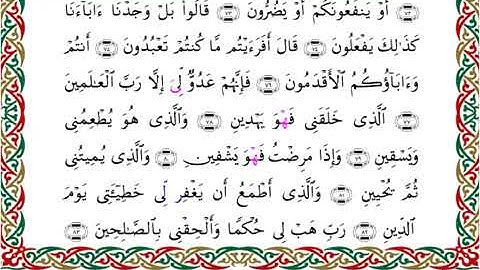 أَوۡ يَنفَعُونَكُمۡ أَوۡ يَضُرُّونَ ٧٣ قَالُواْ بَلۡ وَجَدۡنَآ ءَابَآءَنَا
كَذَٰلِكَ يَفۡعَلُونَ ٧٤ قَالَ أَفَرَءَيۡتُم مَّا كُنتُمۡ تَعۡبُدُونَ ٧٥ أَنتُمۡ
وَءَابَآؤُكُمُ ٱلۡأَقۡدَمُونَ ٧٦ فَإِنَّهُمۡ عَدُوّٞ لِّيَ إِلَّا رَبَّ ٱلۡعَٰلَمِينَ
٧٧ ٱلَّذِي خَلَقَنِي فَهۡوَ يَهۡدِينِ ٧٨ وَٱلَّذِي هُوَ يُطۡعِمُنِي
وَيَسۡقِينِ ٧٩ وَإِذَا مَرِضۡتُ فَهۡوَ يَشۡفِينِ ٨٠ وَٱلَّذِي يُمِيتُنِي
ثُمَّ يُحۡيِينِ ٨١ وَٱلَّذِيٓ أَطۡمَعُ أَن يَغۡفِر لِّي خَطِيٓـَٔتِي يَوۡمَ
ٱلدِّينِ ٨٢ رَبِّ هَبۡ لِي حُكۡمٗا وَأَلۡحِقۡنِي بِٱلصَّٰلِحِينَ ٨٣